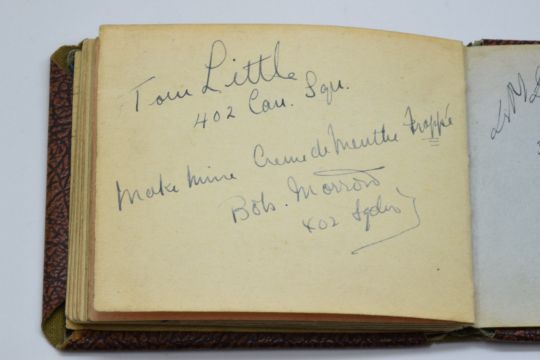 Tom Little
402 Can. Sqn.
Make mine Creme de Menthe Frappé
Bob. Morrow
402 Sqdn